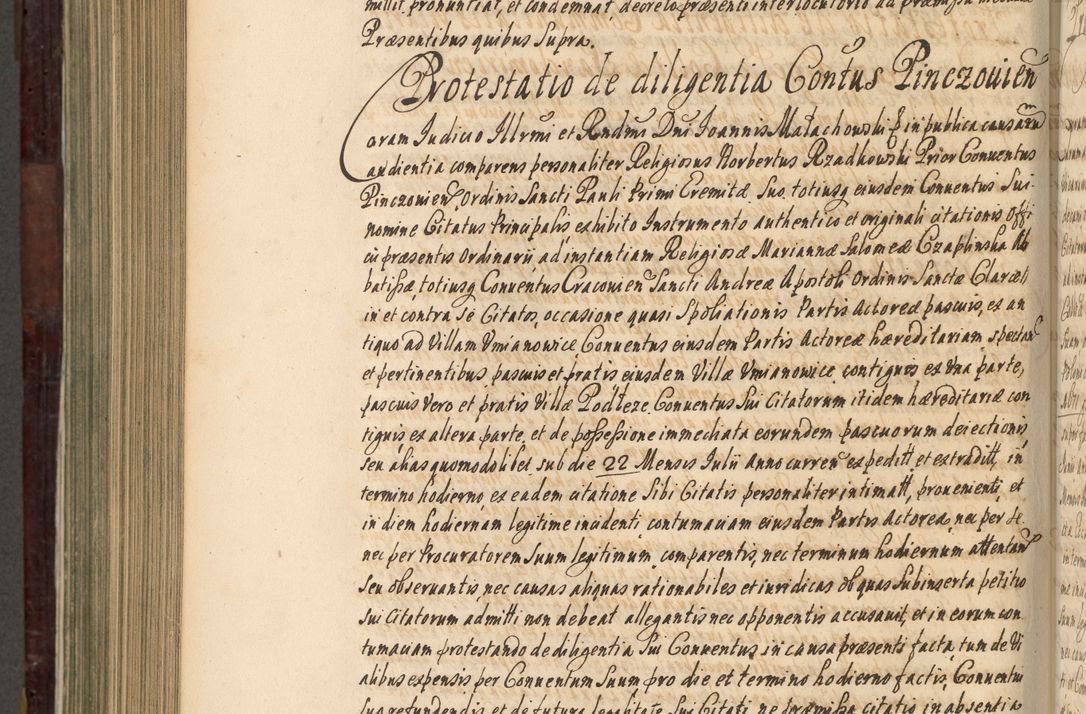 mittit, pronuntiat, et condemnat, decreto præsenti interlocutorio ad præmissa
Præsentibus quibus Supra.
Protestatio de diligentia Contus Pinczouien
Coram Iudicio Illrmi et Rndmi Dni Ioannis Małachowski in publica causarum
audientia comparens personaliter Religiosus Norbertus Rządkowski Prior Conuentus
Pinczouien Ordinis Sancti Pauli Primi Eremitæ Suo, totiusq eiusdem Conuentus Sui
nomine Citatus Principalis exhibito Instrumento authentico et originali citationis Offi
cii præsentis Ordinarii ad instantiam Religiosæ Mariannæ Salomeæ Czaplinska Ab
batissæ, totiusq Conuentus Cracouien Sancti Andreæ Apostoli Ordinis Sanctæ Claræ
in et contra Se Citatos, occasione quasi Spoliationis Partis Actoreæ pascuis, ex an
tiquo ad Villam Vmianowice Conuentus eiusdem Partis Actoreæ hæreditariam spectan
et pertinentibus pascuis et pratis eiusdem Villæ Vmianowice contiguis ex Vna parte,
pascuis Vero et pratis Villæ Podłeze Conuentus Sui Citatorum itidem hæreditariæ con
tiguis ex altera parte, et de possessione immediata eorundem pascuorum deiectionis
seu alias quomodolibet sub die 22 Mensis Iulii Anno curren expeditt et extraditt, in
termino hodierno, ex eadem citatione Sibi Citatis personaliter intimatt, prouenienti et
in diem hodiernam legitime incidenti contumaciam eiusdem Partis Actoreæ, nec per se
nec per Procuratorem Suum legitimum comparentis, nec terminum hodiernum attentan
seu obseruantis, nec causas aliquas rationabiles et iuridicas ob quas Subinserta petitio
Sui Citatorum admitti non debeat allegantis nec opponentis accusauit, et in eorum con
tumaciam protestando de diligentia Sui Conuentus in causa præsenti facta, tum de Vi
alibus expensis per Conuentum Suum pro die et termino hodierno factis, Conuentui
Suo refundendis et de futura legalitate Sui Citati, ne præmissa citatio in absentia